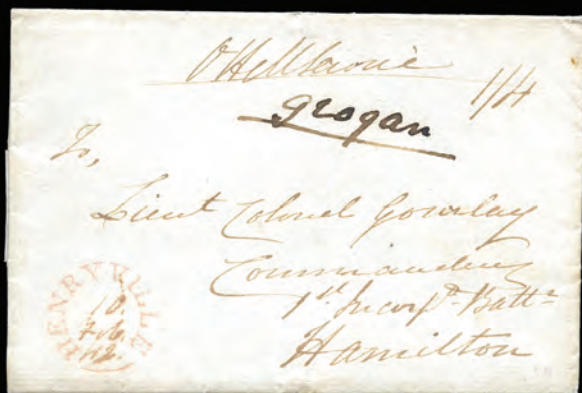 OHMService
1/4
Grogan
To,
Lieut Colonel Gourlay
Commanding
1st Incorpd Battn
Hamilton
HENRYVILLE
10.
Feb.
42.